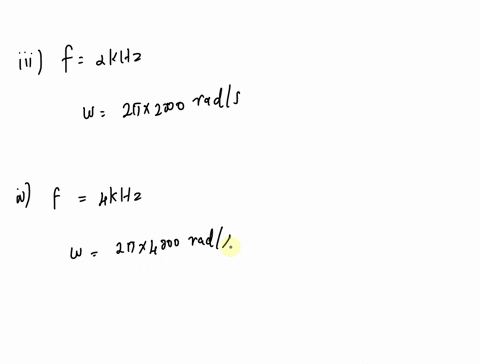 iii) f = 2kHz
w = 2π × 2000 rad/s
iv) f = 4kHz
w = 2π × 4000 rad/s